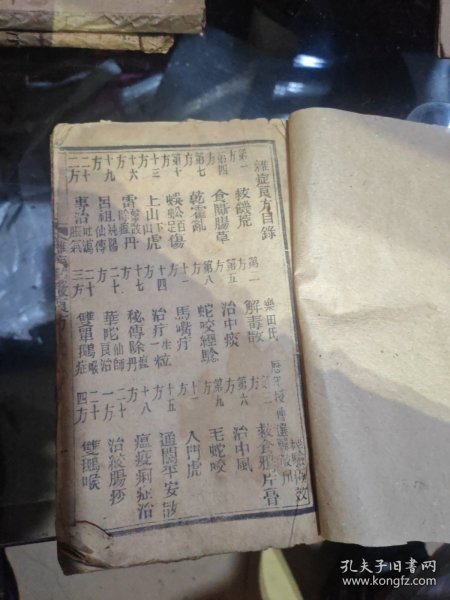 雜症良方目錄 樂田氏
第一方 救饑荒 第二方 解毒散 第三方 救食鴉片膏
第四方 食斷腸草 第五方 治中痰 第六方 治中風
第七方 乾霍亂 第八方 蛇咬經驗 第九方 毛蛇咬
第十方 蜈蚣百足傷 十一方 馬嘴疔 十二方 入門虎
十三方 上山虎 十四方 治疔一粒 十五方 通關平安散
十六方 雷 丹 十七方 秘傳除瘟丹 十八方 瘟疫痢症治
十九方 呂祖仙傳 二十方 華陀仙師良治 二十一方 治絞腸痧
二十二方 專治 脹氣 二十三方 雙單鵝喉症 二十四方 雙鵝喉
孔夫子旧书网
www.kongfz.com